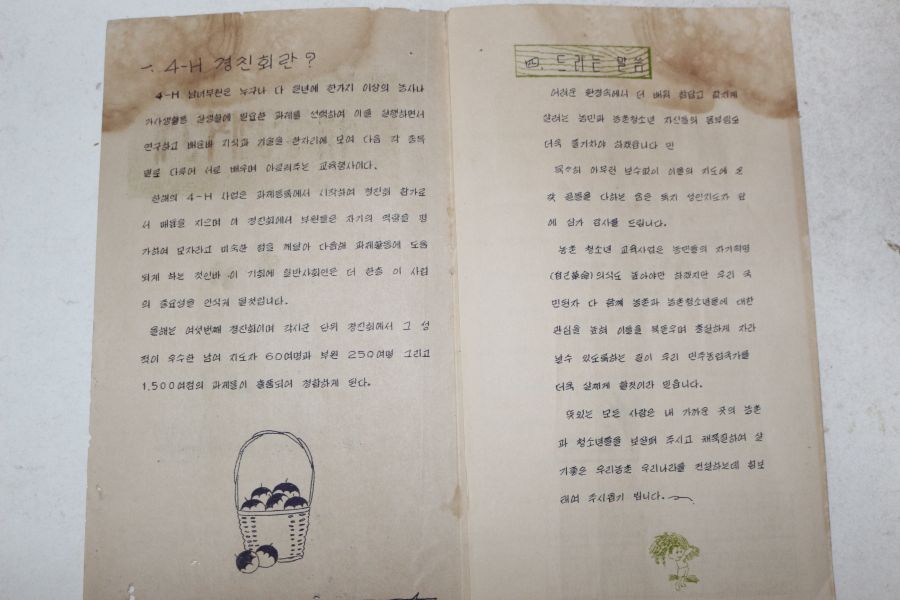 一. 4-H 경진회란?
4-H 남녀부원은 누구나 다 일년에 한가지 이상의 농사나
가사생활등 실생활에 필요한 과제를 선택하여 이를 실행하면서
연구하고 배운바 지식과 기술을 한자리에 모여 다음 각 종목
별로 다루어 서로 배우며 아르켜주는 교육행사이다.
한해의 4-H 사업은 과제이수에서 시작하여 경진회 참가로
서 매듭을 지으며 이 경진회에서 부원들은 자기의 역량을 평
가하여 모자라고 미숙한 점을 깨달아 다음해 과제활동에 도움
되게 하는 것인바 이 기회에 일반사회인은 더 한층 이 사업
의 중요성을 인식케 될것입니다.
올해는 여섯번째 경진회이며 각시군 단위 경진회에서 그 성
적이 우수한 남여 지도자 60여명과 부원 250여명 그리고
1,500여점의 과제물이 출품되어 경합하게 된다.
四. 드리는 말씀
어려운 환경속에서 더 배워 참답고 값지게
살려는 농민과 농촌청소년 자신들의 몸부림도
더욱 줄기차야 하겠읍니다 만
특히 아무런 보수없이 이들의 지도에 온
갖 힘을 다하는 숨은 독지 성인지도자 앞
에 심가 감사를 드립니다.
농촌 청소년 교육사업은 농민들의 자기혁명
(自己革命)의식도 높아야만 하겠지만 우리 국
민된자 다 함께 농촌과 농촌청소년들에 대한
관심을 높혀 이들을 북돋우며 충실하게 자라
날수 있도록하는 길이 우리 민주농립국가를
더욱 살찌게 할것이라 믿읍니다.
뜻있는 모든 사람은 내 가까운 곳의 농촌
과 청소년들을 보살펴 주시고 채찍질하여 살
기좋은 우리농촌 우리나라를 건설하는데 힘모
래여 주시옵기 빕니다.